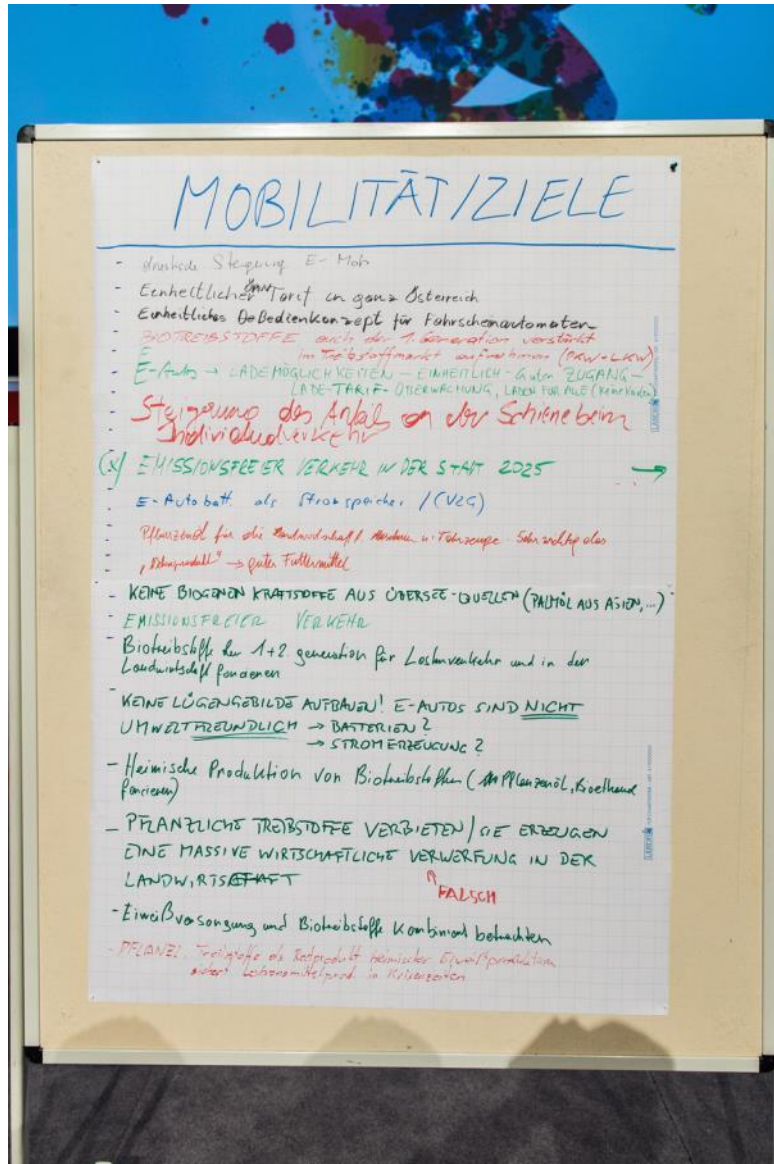 MOBILITÄT/ZIELE
- drastische Steigerung E-Mob
- Einheitlicher ÖPNV Tarif in ganz Österreich
- Einheitliches Bedienkonzept für Fahrscheinautomaten
- BIOTREIBSTOFFE auch der 1. Generation verstärkt
im Treibstoffmarkt aufnehmen (PKW+LKW)
E
- E-Autos → LADEMÖGLICHKEITEN - EINHEITLICH - Guter ZUGANG -
LADE-TARIF-ÜBERWACHUNG, LADEN FÜR ALLE (keine Karten)
- Steigerung des Anteils an der Schiene beim
Individualverkehr
(x) EMISSIONSFREIER VERKEHR IN DER STADT 2025 →
- E-Autobatt. als Stromspeicher / (V2G)
- Pflanzenöl für die Landwirtschaft. u. Fahrzeuge. Sehr wichtig das
" " → guter Futtermittel
- KEINE BIOGENEN KRAFTSTOFFE AUS ÜBERSEE-QUELLEN (PALMÖL AUS ASIEN,...)
- EMISSIONSFREIER VERKEHR
- Biotreibstoffe der 1+2. generation für Lastenverkehr und in der
Landwirtschaft forcieren
- KEINE LÜGENGEBILDE AUFBAUEN! E-AUTOS SIND NICHT
UMWELTFREUNDLICH → BATTERIEN?
→ STROMERZEUGUNG?
- Heimische Produktion von Biotreibstoffen (Pflanzenöl, Bioethanol
forcieren)
- PFLANZLICHE TREIBSTOFFE VERBIETEN / SIE ERZEUGEN
EINE MASSIVE WIRTSCHAFTLICHE VERWERFUNG IN DER
LANDWIRTSCHAFT
FALSCH
- Eiweißversorgung und Biotreibstoffe kombiniert betrachten
- PFLANZL. Treibstoffe als Restprodukt heimischer Eiweißproduktion
sichert Lebensmittelprod. in Krisenzeiten